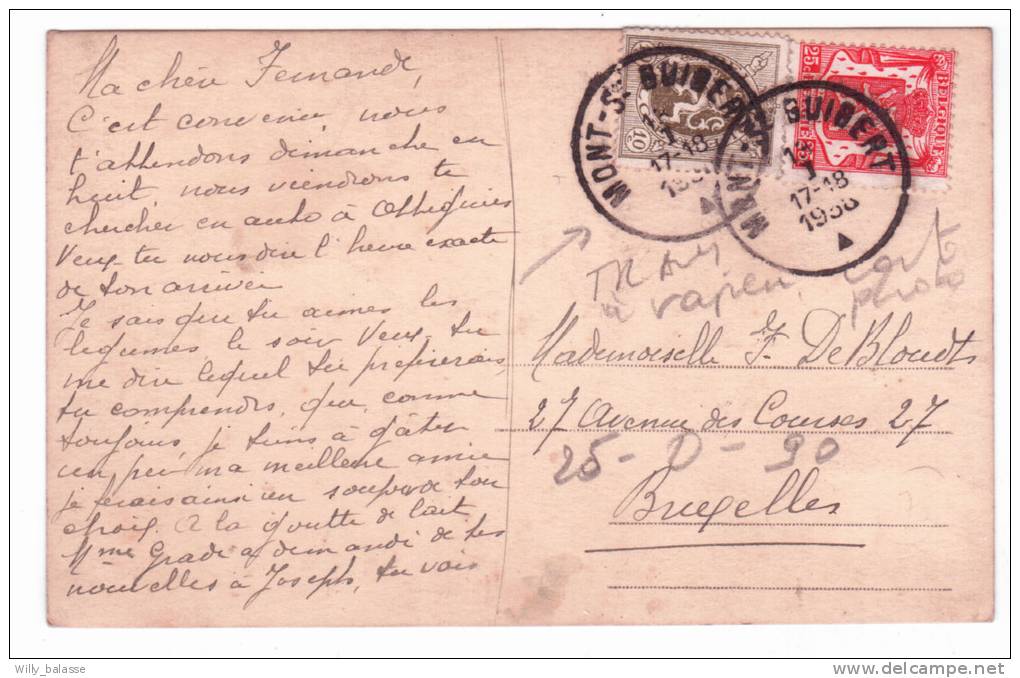 Ma chère Fernande,
C'est convenu, nous
t'attendons dimanche en
huit, nous viendrons te
chercher en auto à Ottignies
Veux-tu nous dire l'heure exacte
de ton arrivée
Je sais que tu aimes les
légumes le soir Veux tu
me dire lequel tu préfèrerais,
tu comprendrs, que, comme
toujours, je tiens à gâter
un peu ma meilleure amie
je ferais ainsi un souper de ton
choix. A la goutte de lait
Mme Grade a demandé de tes
nouvelles à Joseph, tu vois
MONT-St GUIBERT
17-18
MONT GUIBERT
13
17-18
1938
10
25c
BELGIQUE
à vapeur, cart
photo
Mademoiselle F. De Bloudts
27 Avenue des Courses 27
25 - D - 90
Bruxelles
Willy_balasse
delcampe.net